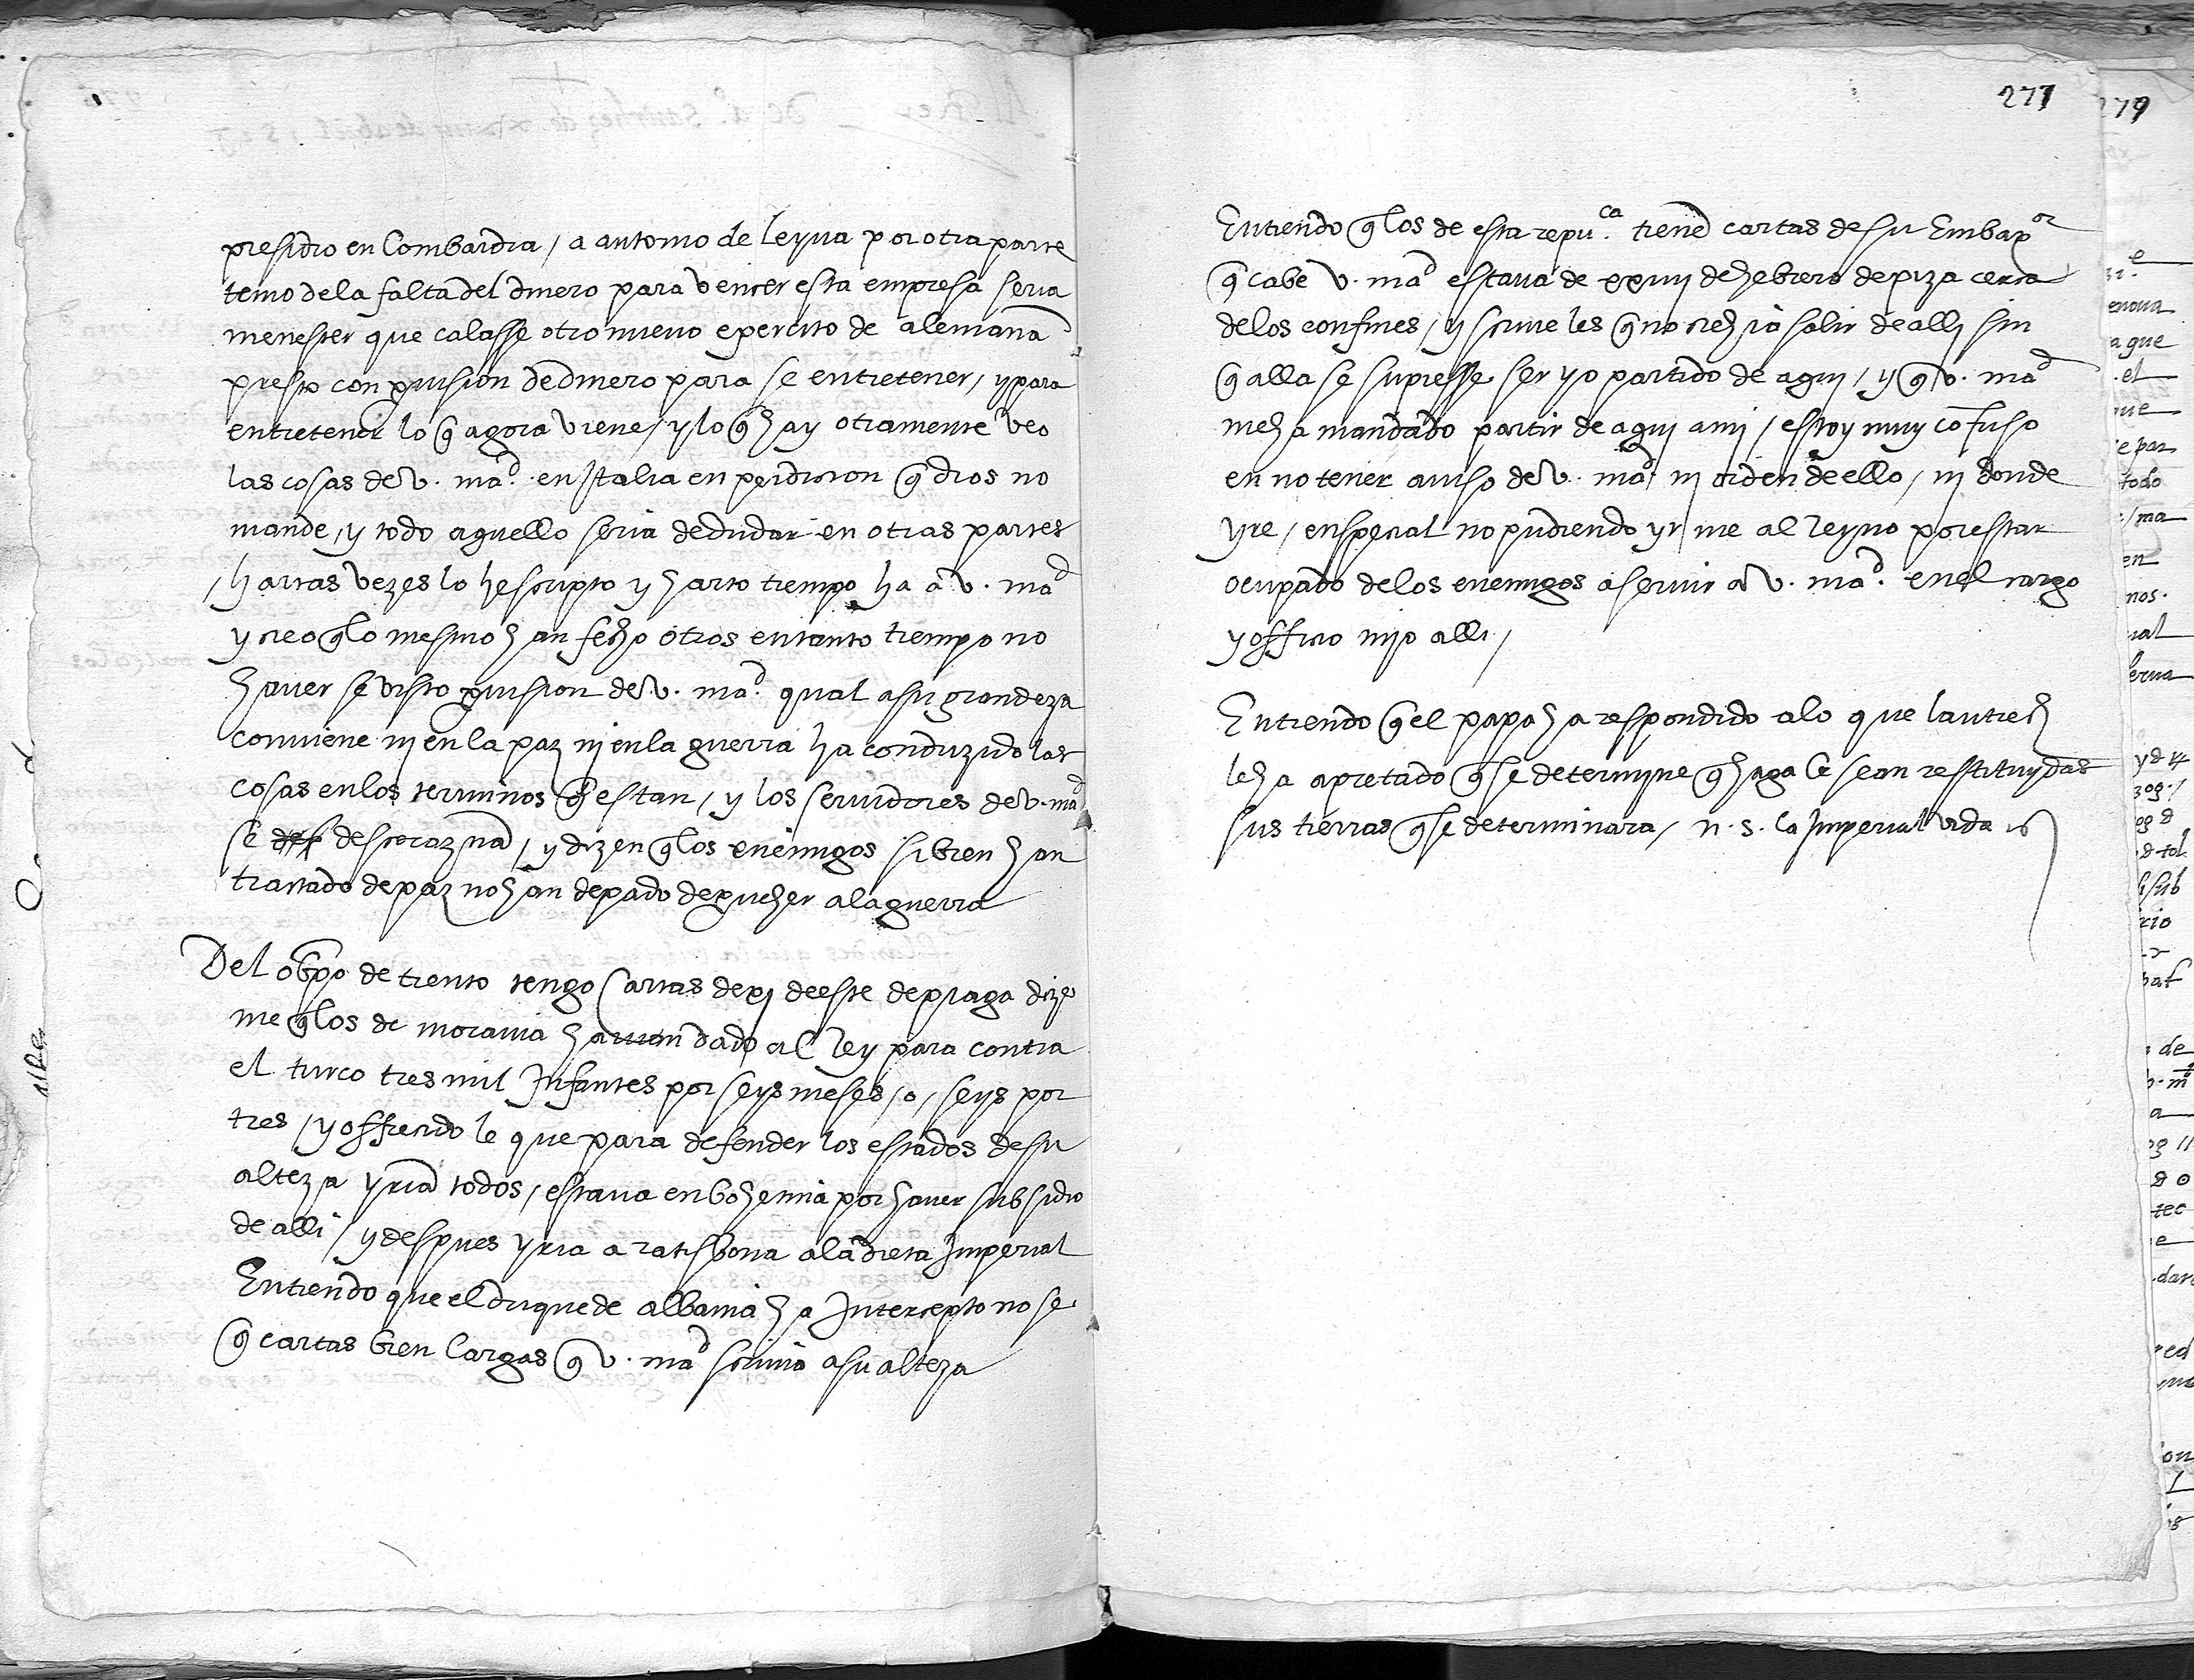 presidio en Lombardia / a antonio de leyua por otra parte
temo de la falta del dinero para vencer esta empresa seria
menester que calasse otro nueuo exercito de alemaña
presto con prouision de dinero para se entretener / y para
entretener lo q̃ agora viene / y lo q̃ hay otramente veo
las cosas de v. mad. en Italia en perdicion q̃ dios no
mande / y todo aquello seria de dudar en otras partes
/ hartas vezes lo he scripto y harto tiempo ha a v. mad
y creo q̃ lo mesmo han fecho otros en tanto tiempo no
hauer se visto prouision de v. mad. qual a su grandeza
conuiene nj en la paz nj en la guerra ha conduzido las
cosas en los terminos q̃ estan / y los seruidores de v. mad
se descorazonã / y dizen q̃ los enemigos si bien han
tractado de paz no han dexado de prouher a la guerra
Del obpo de trento tengo cartas de xj de este de praga dize
me q̃ los de morauia han dado al Rey para contra
el turco tres mil Infantes por seys meses / o / seys por
tres / y offrecido le que para defender los estados de su
alteza yriã todos / estaua en bohemia por hauer subsidio
de alli / y despues yria a ratisbona a la dieta Imperial
Entiendo que el duque de albania ha Intercepto no se
q̃ cartas bien largas q̃ v. mad scriuia a su alteza
277
Entiendo q̃ los de esta repuca. tienẽ cartas de su Embaxor
q̃ cabe v. mad estaua de xxviij de hebrero de piza cerca
de los confines / y scriue les q̃ no creh ia salir de allj sin
q̃ alla se supiesse ser yo partido de aquj / y q̃ v. mad
me ha mandado partir de aquj a mj / estoy muy cõfuso
en no tener auiso de v. mad. nj orden de ello / nj donde
yre / en special no pudiendo yr me al Reyno por estar
ocupado de los enemigos a seruir a v. mad. en el cargo
y officio mjo alli /
Entiendo q̃ el papa ha respondido a lo que lautrech
le ha apretado q̃ se determine q̃ haga le sean restituydas
sus tierras q̃ se determinara / n. s. la Imperial vida
279